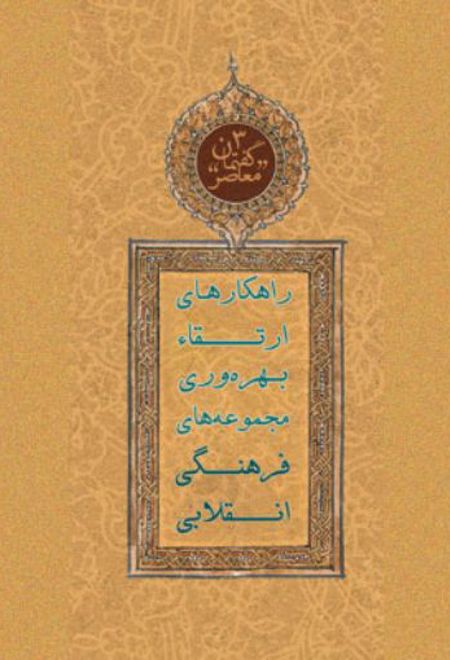 ۳
گفتمان
«معاصر»
راهکارهای
ارتـقاء
بهره‌وری
مجموعه‌های
فرهنگی
انـقلابی